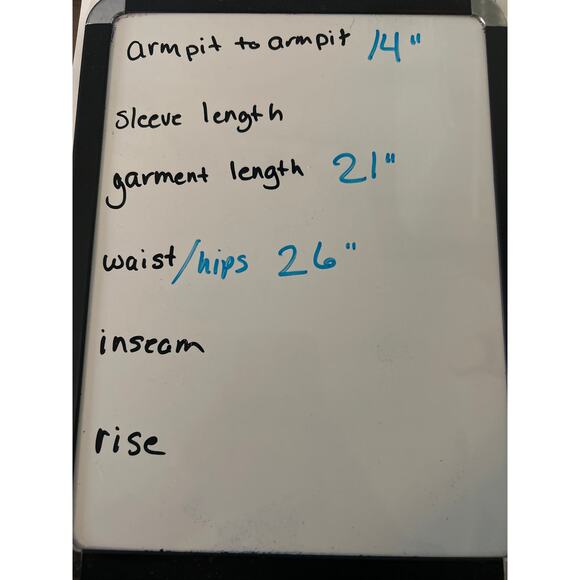 armpit to armpit 14"
sleeve length
garment length 21"
waist/hips 26"
inseam
rise